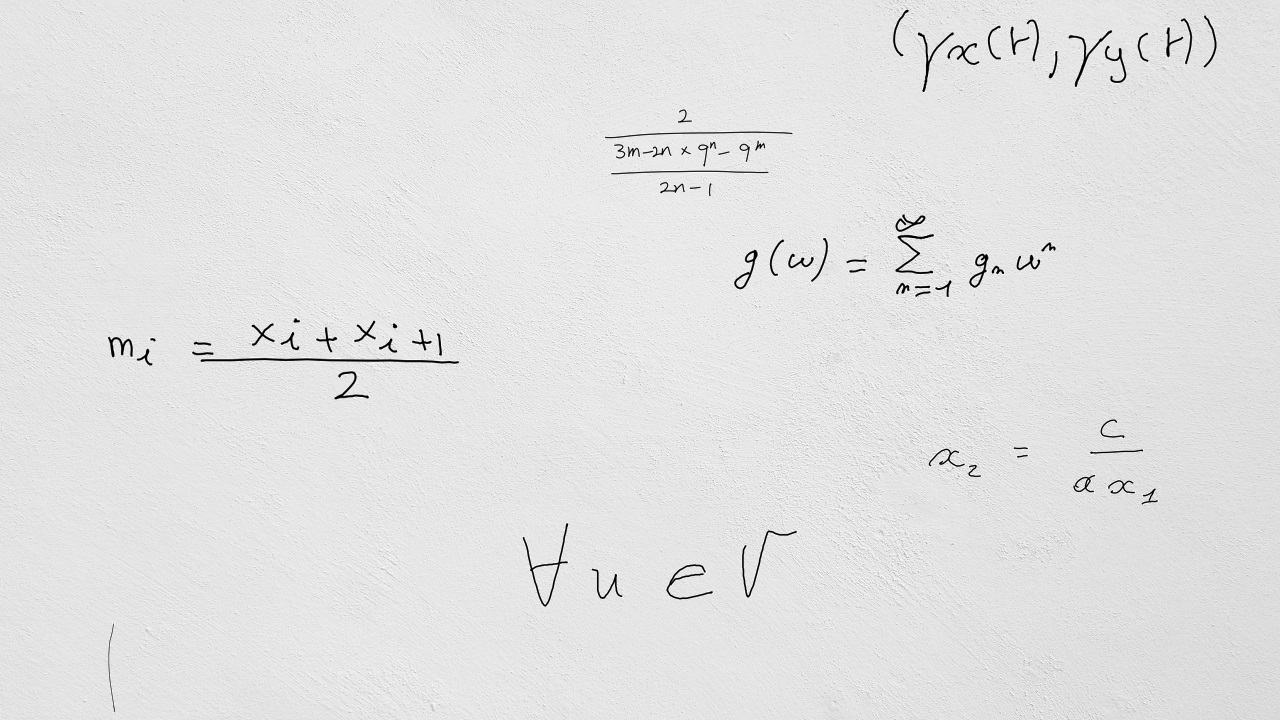 (γx(t), γy(t))
\frac{2}{\frac{3m-2n × 9^n - 9^m}{2n-1}}
g(ω) = \sum_{n=1}^{∞} g_n ω^n
m_i = \frac{x_i + x_i+1}{2}
x_2 = \frac{c}{a x_1}
∀ u ∈ V
(